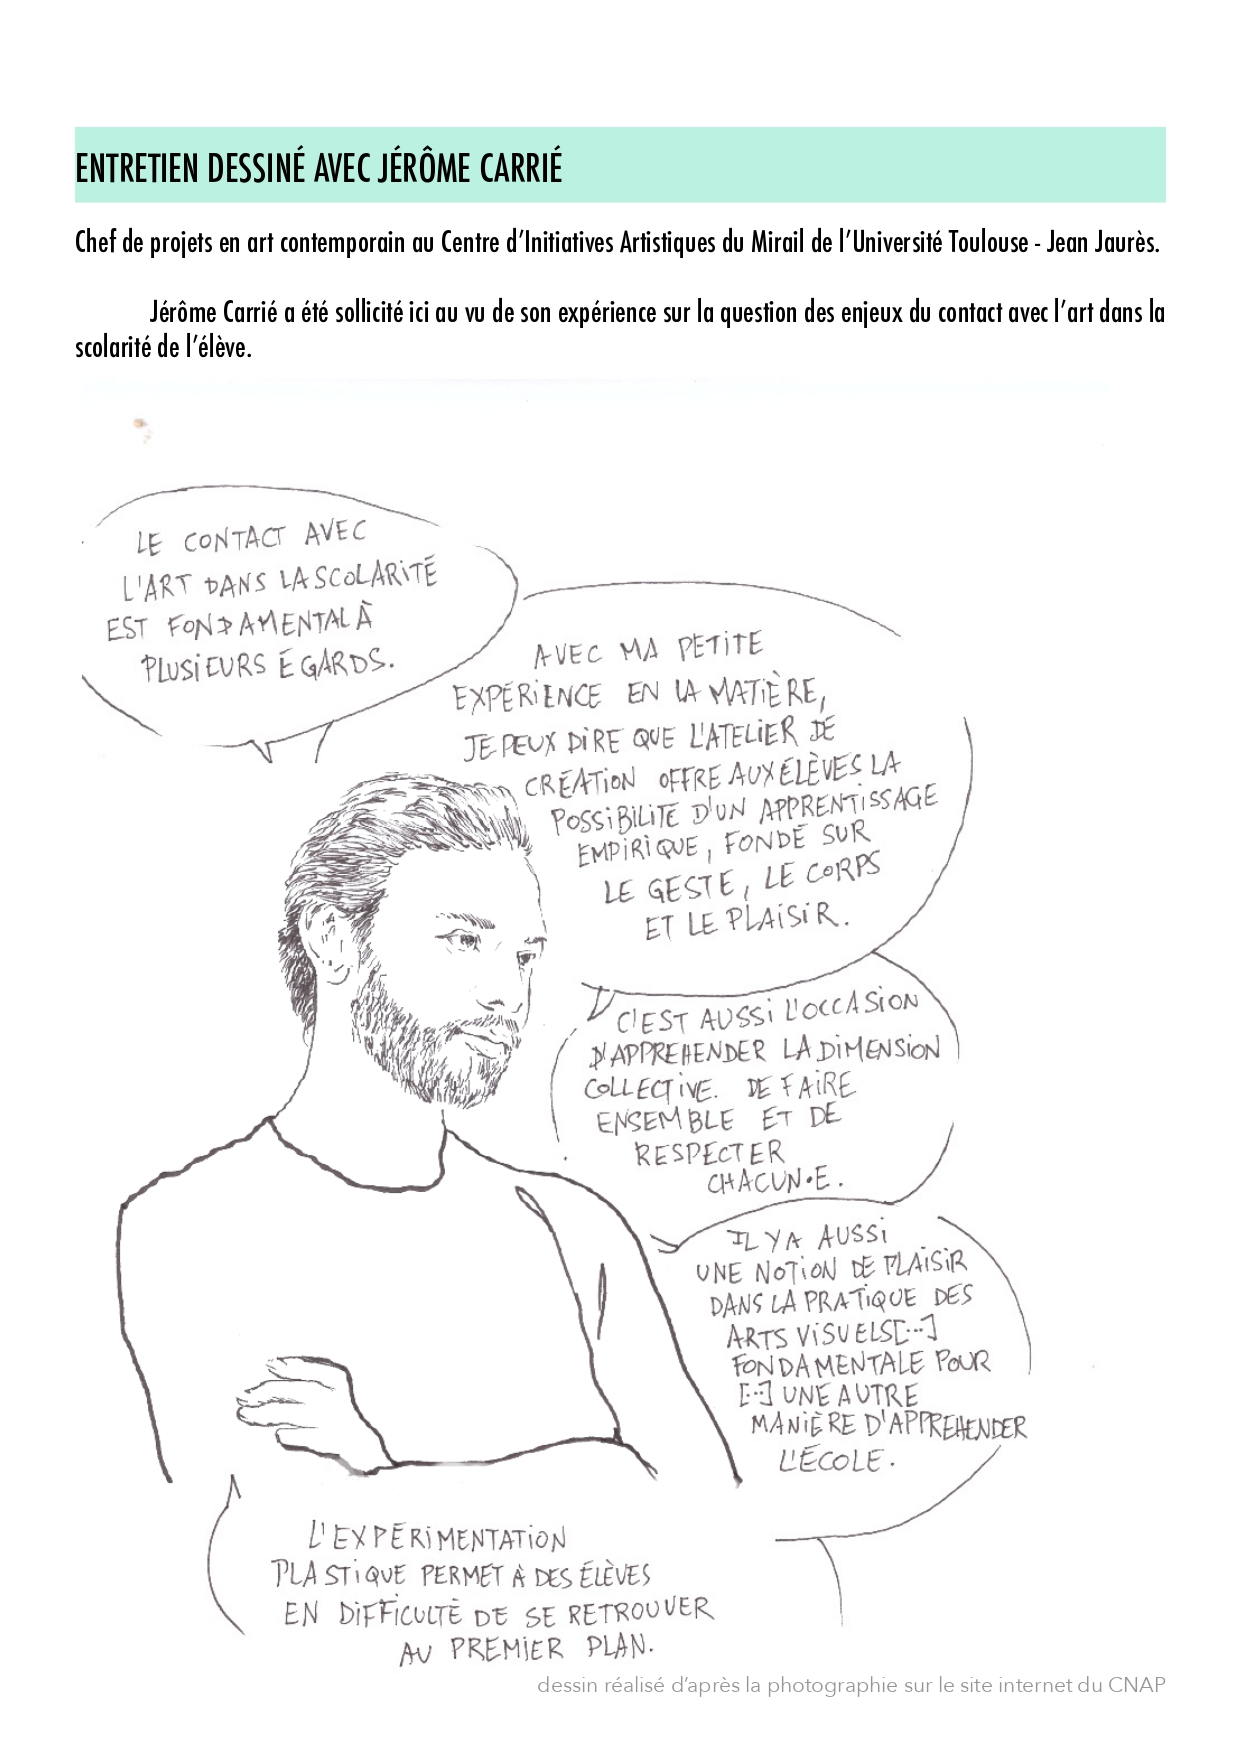 ENTRETIEN DESSINÉ AVEC JÉRÔME CARRIÉ
Chef de projets en art contemporain au Centre d'Initiatives Artistiques du Mirail de l'Université Toulouse - Jean Jaurès.
Jérôme Carrié a été sollicité ici au vu de son expérience sur la question des enjeux du contact avec l'art dans la
scolarité de l'élève.
LE CONTACT AVEC
L'ART DANS LA SCOLARITÉ
EST FONDAMENTAL À
PLUSIEURS ÉGARDS.
AVEC MA PETITE
EXPÉRIENCE EN LA MATIÈRE,
JE PEUX DIRE QUE L'ATELIER DE
CRÉATION OFFRE AUX ÉLÈVES LA
POSSIBILITÉ D'UN APPRENTISSAGE
EMPIRIQUE, FONDÉ SUR
LE GESTE, LE CORPS
ET LE PLAISIR.
C'EST AUSSI L'OCCASION
D'APPREHENDER LA DIMENSION
COLLECTIVE. DE FAIRE
ENSEMBLE ET DE
RESPECTER
CHACUN•E.
IL Y A AUSSI
UNE NOTION DE PLAISIR
DANS LA PRATIQUE DES
ARTS VISUELS [...]
FONDAMENTALE POUR
[...] UNE AUTRE
MANIÈRE D'APPREHENDER
L'ÉCOLE.
L'EXPÉRIMENTATION
PLASTIQUE PERMET À DES ÉLÈVES
EN DIFFICULTÉ DE SE RETROUVER
AU PREMIER PLAN.
dessin réalisé d'après la photographie sur le site internet du CNAP